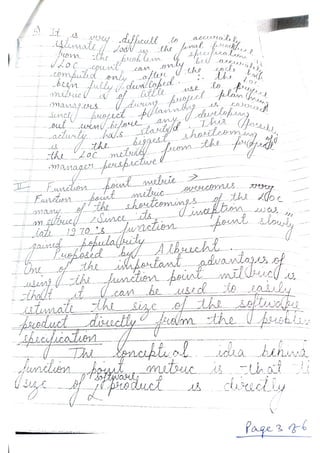 5) It is very difficult to accurately
estimate LOC in the final product
from the problem specification.
LOC count can only be accurately
computed only after the code has
been fully developed ∴ the LOC
metric is of little use to project
managers during project planning
since project planning is carried
out even before any developing
activity has started This possibly
is the biggest shortcoming of
the LOC metric from the project
manager perspective
II Function point metric →
Function point metric overcomes
many of the shortcomings of the LOC
metric Since its inception was in
late 1970's, function point slowly
gained popularity
Proposed by Albrecht.
One of the important advantages of
using the function point metric is
that it can be used to easily
estimate the size of the software
product directly from the problem
specification
The conceptual idea behind
function point metric is that the
size of software product is directly
Page 3 of 6